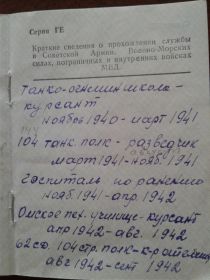 Серия ГЕ
Краткие сведения о прохождении службы
в Советской Армии, Военно-Морских
силах, пограничных и внутренних войсках
МВД.
Танко- школа-
курсант
ноябрь 1940-март 1941
104 танк. полк - разведчик
март 1941-нояб. 1941
госпиталь по ранению
нояб 1941-апр 1942
Омское пех. училище-курсант
апр 1942-авг. 1942
62 104 стр. полк-к-р
авг 1942-сент 1942